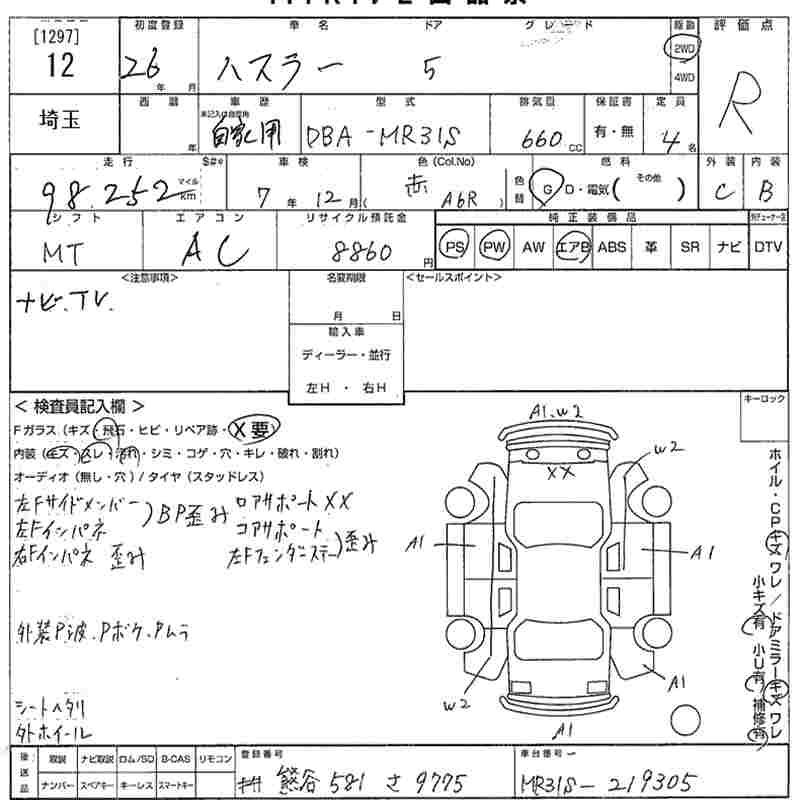 [1297]
12
初度登録
26年 月
車名
ハスラー
ドア
5
グレード
駆動
2WD
4WD
評価点
R
埼玉
西暦
年
車歴
未記入は自家用
自家用
型式
DBA-MR31S
排気量
660cc
保証書
有・無
定員
4名
走行
98,252
マイル
km
$#*
車検
7年12月
色(Col.No)
赤
(A6R)
色替
燃料
G D・電気(その他)
外装
C
内装
B
シフト
MT
エアコン
AC
リサイクル預託金
8860円
純正装備品
PS PW AW エアB ABS 革 SR ナビ DTV
<注意事項>
ナビ.TV.
名変期限
月 日
輸入車
ディーラー・並行
左H ・ 右H
<セールスポイント>
キーロック
<検査員記入欄>
Fガラス(キズ・飛石・ヒビ・リペア跡・X要)
内装(キズ・スレ・汚れ・シミ・コゲ・穴・キレ・破れ・割れ)
オーディオ(無し・穴)/タイヤ(スタッドレス)
左Fサイドメンバー
左Fインパネ
)BP歪み
右Fインパネ 歪み
ロアサポートXX
コアサポート
左Fフェンダーステー
)歪み
外装P波.Pボケ.Pムラ
シートヘタリ
外ホイール
A1.W2
XX
W2
A1
A1
W2
A1
A1
ホイル・CPキズワレ/ドアミラーキズワレ
小キズ有 小U有 補修有
後送品
取説 ナビ取説 ロム/SD B-CAS リモコン
ナンバー スペアキー キーレス スマートキー
登録番号
熊谷 581 さ 9775
車台番号
MR31S-219305